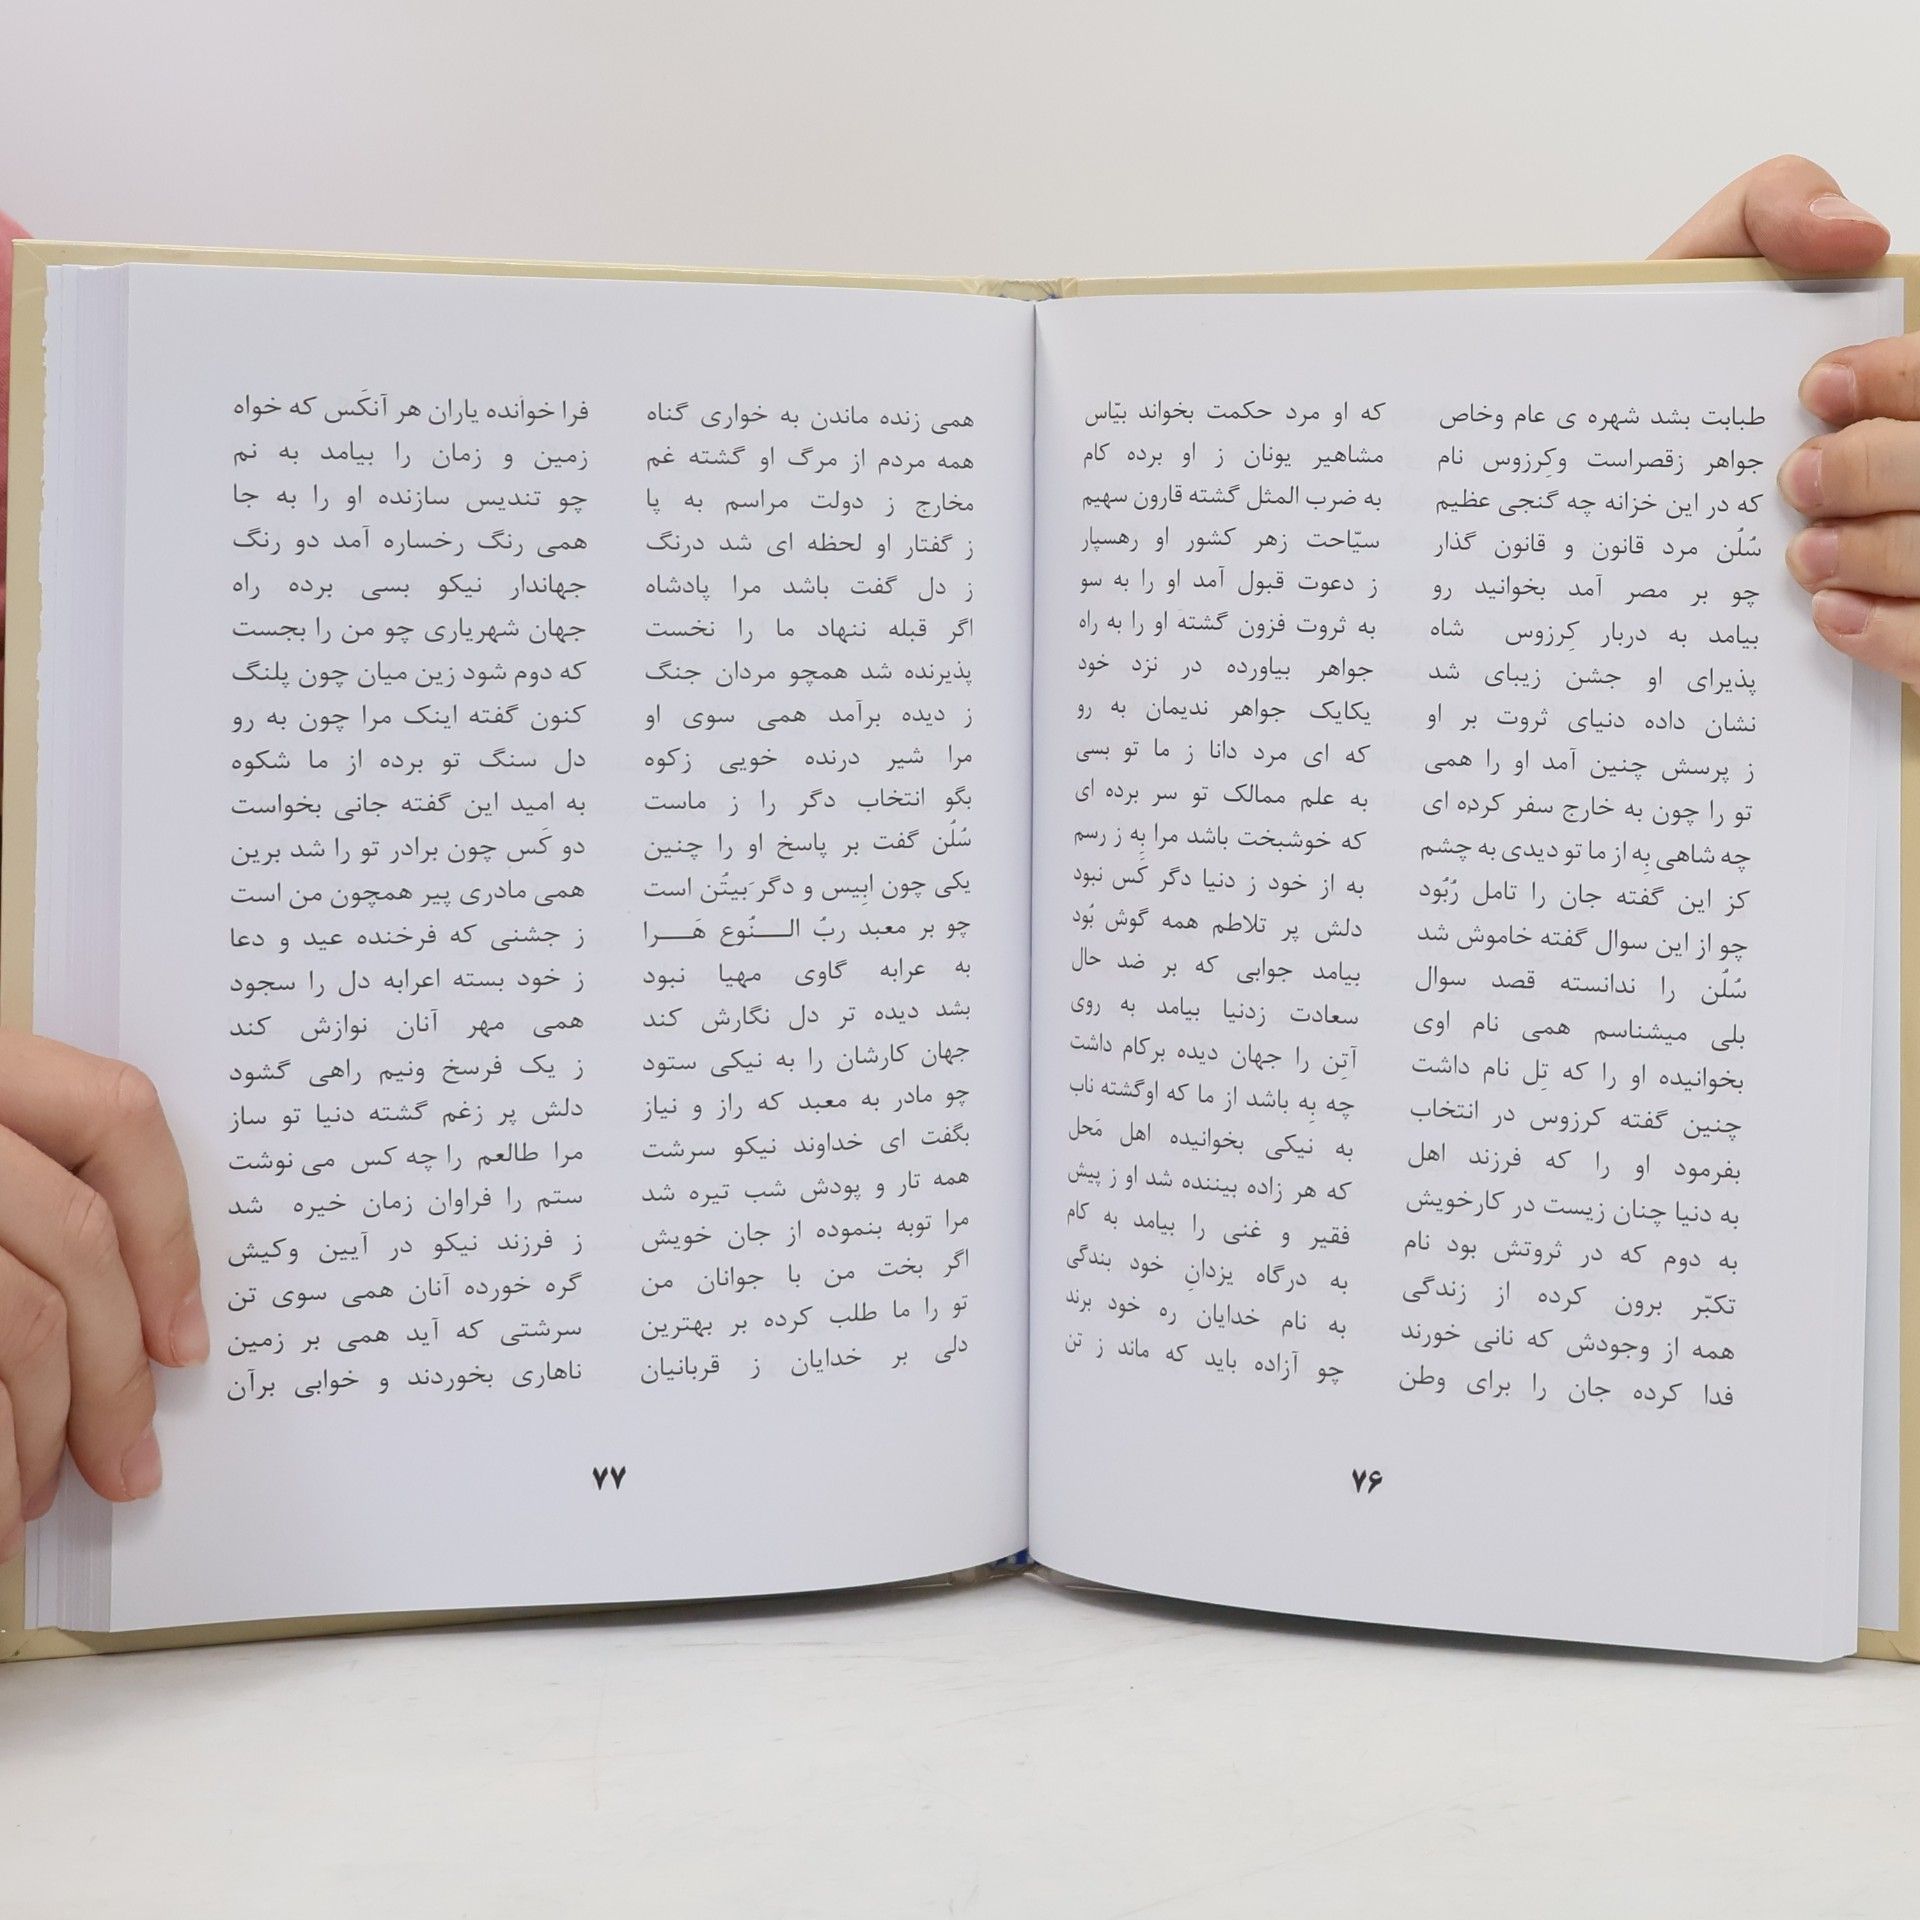 طبابت بشد شهره ی عام وخاص که او مرد حکمت بخواند بیّاس
جواهر زقصراست وکِرزوس نام مشاهیر یونان ز او برده کام
که در این خزانه چه گنجی عظیم به ضرب المثل گشته قارون سهیم
سُلُن مرد قانون و قانون گذار سیّاحت زهر کشور او رهسپار
چو بر مصر آمد بخوانید رو ز دعوت قبول آمد او را به سو
بیامد به دربار کِرزوس شاه به ثروت فزون گشته او را به راه
پذیرای او جشن زیبای شد جواهر بیاورده در نزد خود
نشان داده دنیای ثروت بر او یکایک جواهر ندیمان به رو
ز پرسش چنین آمد او را همی که ای مرد دانا ز ما تو بسی
تو را چون به خارج سفر کرده ای به علم ممالک تو سر برده ای
چه شاهی بِه از ما تو دیدی به چشم که خوشبخت باشد مرا بِه ز رسم
کز این گفته جان را تامل رُبُود به از خود ز دنیا دگر کَس نبود
چو از این سوال گفته خاموش شد دلش پر تلاطم همه گوش بُود
سُلُن را ندانسته قصد سوال بیامد جوابی که بر ضد حال
بلی میشناسم همی نام اوی سعادت زدنیا بیامد به روی
بخوانیده او را که تِل نام داشت آتِن را جهان دیده برکام داشت
چنین گفته کرزوس در انتخاب چه بِه باشد از ما که اوگشته ناب
بفرمود او را که فرزند اهل به نیکی بخوانیده اهل مَحل
به دنیا چنان زیست در کارخویش که هر زاده بیننده شد او ز پیش
به دوم که در ثروتش بود نام فقیر و غنی را بیامد به کام
تکبّر برون کرده از زندگی به درگاه یزدانِ خود بندگی
همه از وجودش که نانی خورند به نام خدایان ره خود برند
فدا کرده جان را برای وطن چو آزاده باید که ماند ز تن
۷۶
همی زنده ماندن به خواری گناه فرا خوانده یاران هر آنکَس که خواه
همه مردم از مرگ او گشته غم زمین و زمان را بیامد به نم
مخارج ز دولت مراسم به پا چو تندیس سازنده او را به جا
ز گفتار او لحظه ای شد درنگ همی رنگ رخساره آمد دو رنگ
ز دل گفت باشد مرا پادشاه جهاندار نیکو بسی برده راه
اگر قبله ننهاد ما را نخست جهان شهریاری چو من را بجست
پذیرنده شد همچو مردان جنگ که دوم شود زین میان چون پلنگ
ز دیده برآمد همی سوی او کنون گفته اینک مرا چون به رو
مرا شیر درنده خویی زکوه دل سنگ تو برده از ما شکوه
بگو انتخاب دگر را ز ماست به امید این گفته جانی بخواست
سُلُن گفت بر پاسخ او را چنین دو کَس چون برادر تو را شد برین
یکی چون اِبیس و دگر َبیتُن است همی مادری پیر همچون من است
چو بر معبد ربُ النُوع هَرا ز جشنی که فرخنده عید و دعا
به عرابه گاوی مهیا نبود ز خود بسته اعرابه دل را سجود
بشد دیده تر دل نگارش کند همی مهر آنان نوازش کند
جهان کارشان را به نیکی ستود ز یک فرسخ ونیم راهی گشود
چو مادر به معبد که راز و نیاز دلش پر زغم گشته دنیا تو ساز
بگفت ای خداوند نیکو سرشت مرا طالعم را چه کس می نوشت
همه تار و پودش شب تیره شد ستم را فراوان زمان خیره شد
مرا توبه بنموده از جان خویش ز فرزند نیکو در آیین وکیش
اگر بخت من با جوانان من گره خورده آنان همی سوی تن
تو را ما طلب کرده بر بهترین سرشتی که آید همی بر زمین
دلی بر خدایان ز قربانیان ناهاری بخوردند و خوابی برآن
۷۷